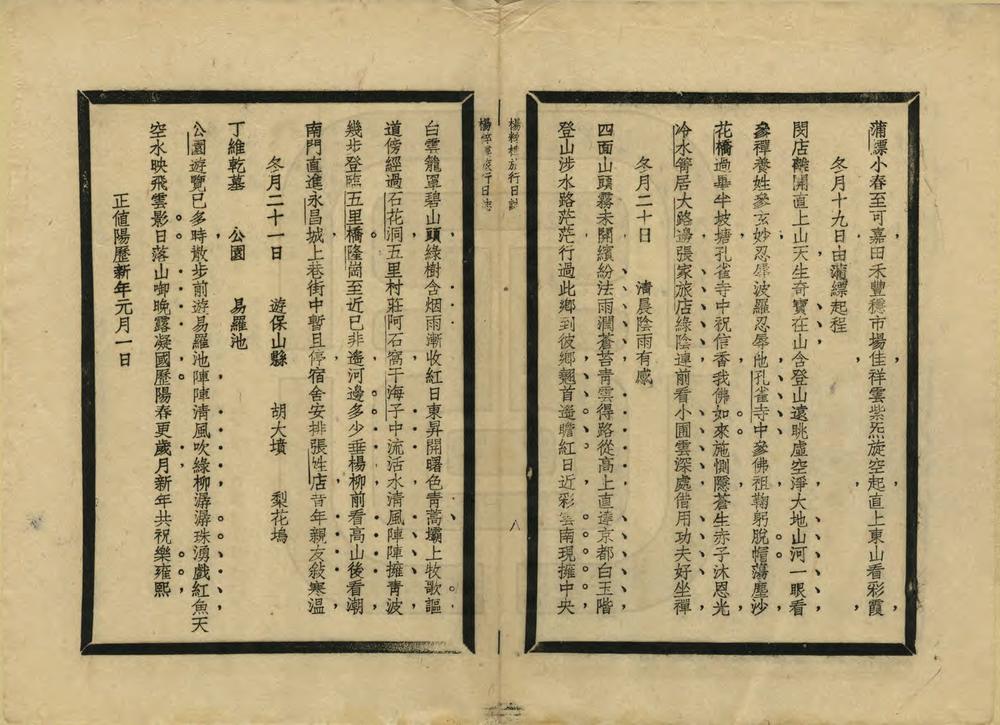 蒲縹小春至可嘉田禾豐穩市場佳祥雲紫炁旋空起直上東山看彩霞
冬月十九日由蒲縹起程
閔店離開直上山天生奇寶在山含登山遠眺虛空淨大地山河一眼看
參禪養姓參玄妙忍辱波羅忍辱他孔雀寺中參佛祖鞠躬脫帽蕩塵沙
花橋過畢半坡塘孔雀寺中祝信香我佛如來施惻隱蒼生赤子沐恩光
冷水箐居大路邊張家旅店綠陰連前看小圃雲深處借用功夫好坐禪
冬月二十日 清晨陰雨有感
四面山頭霧未開繽紛法雨潤蒼苔青雲得路從高上直達京都白玉階
登山涉水路茫茫行過此鄉到彼鄉翹首遙瞻紅日近彩雲南現擁中央
旅行日誌
八
旅行日誌
白雲籠罩碧山頭綠樹含烟雨漸收紅日東昇開曙色青蒿壩上牧歌謳
道傍經過石花洞五里村莊阿石窩干海子中流活水清風陣陣擁青波
幾步登臨五里橋隆崗至近已非遙河邊多少垂楊柳前看高山後看潮
南門直進永昌城上巷街中暫且停宿舍安排張姓店昔年親友敍寒溫
冬月二十一日 遊保山縣 胡大墳 梨花塢
丁維乾墓 公園 易羅池
公園遊覽已多時散步前遊易羅池陣陣清風吹綠柳潺潺珠湧戲紅魚天
空水映飛雲影日落山啣晚露凝國歷陽春更歲月新年共祝樂雍熙
正値陽歷新年元月一日